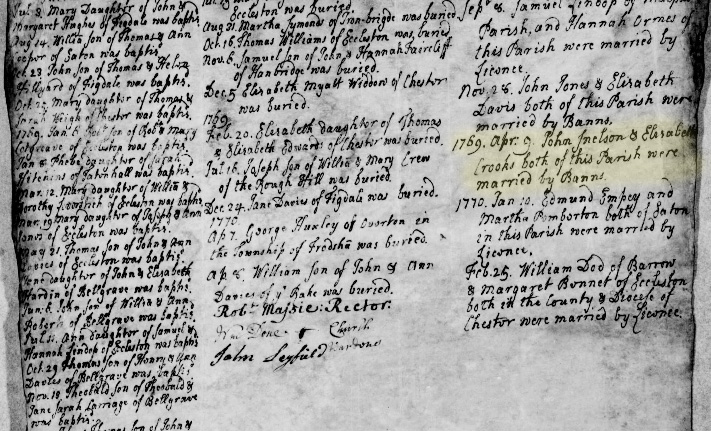 Jul. 3. Mary Daughter of John &
Margaret Hughes of Figdale was baptiz.
Aug 14. Willia son of Thomas & Ann
of Eaton was baptiz.
Oct. 23 John son of Thomas & Helen
of Figdale was baptiz.
Oct. 25 Mary daughter of Thomas &
Sarah of Chester was baptiz.
1769. Jan. 8. son of Rob. & Mary
of Eccleston was baptiz.
Phebe daughter of Sarah
was baptiz.
Mar. 12. Mary daughter of Willia &
Dorothy of Eccleston was baptiz.
Mar. 19 Mary daughter of Joseph & Ann
Jones of Eccleston was baptiz.
May 21. Thomas son of John & Ann
Davies of Eccleston was baptiz.
daughter of John & Elizabeth
Hardin of Belgrave was baptiz.
Jun. 6. John son of Willia & Ann
Roberts of Belgrave was baptiz.
Jul. Ann daughter of Samuel &
Hannah Findop of Eccleston was baptiz
Oct. 29 Thomas son of Henry & Ann
Davies of Belgrave was baptiz.
Nov. 19 Theobald son of Theobald &
Jane Sarah of Belgrave
was baptiz.
Thomas son of John &
Eccleston was buried.
Aug 21. Martha Symonds of Iron-bridge was buried
Oct. 16. Thomas Williams of Eccleston was buried
Nov. 6. Samuel son of John & Hannah Faircloff
of Hanbridge was buried.
Dec. 5 Elizabeth Myatt Widdow of Chester
was buried.
1769
Feb. 20. Elizabeth daughter of Thomas
& Elizabeth Edwards of Chester was buried.
Jul. 16. Joseph son of Willia & Mary Crew
of the Rough Hill was buried.
Dec 24 Jane Davies of Figdale was buried.
1770
Ap. 7. George Huxley of Overton in
the Township of Fredsha was buried.
Ap. 8. William Son of John & Ann
Davies of ye Rake was buried.
Robt. Massie: Rector.
Wm. Dene Church
John Leyfield Wardens
Sep. 8. Samuel Findop of
Parish, and Hannah Ormes of
this Parish were married by
Licence.
Nov. 28. John Jones & Elizabeth
Davis both of this Parish were
married by Banns.
1769. Apr. 9. John Inelson & Elizabeth
Crooks both of this Parish were
married by Banns.
1770. Jan. 10. Edmund Empey and
Martha Pemborton both of Eaton
in this Parish were married by
Licence.
Feb. 25. William Dod of Barrow
& Margaret Bonnet of Eccleston
both in the County & Diocese of
Chester were married by Licence.